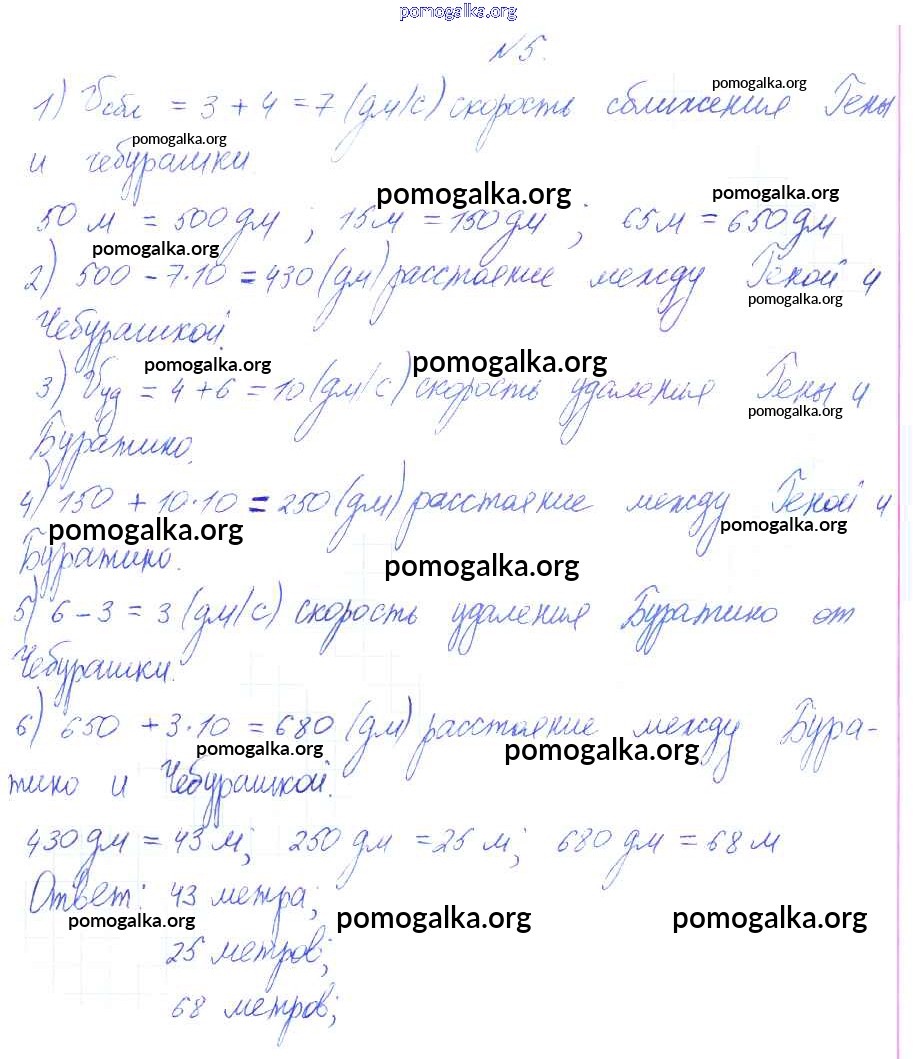 pomogalka.org
№5.
1) Vсбл = 3 + 4 = 7 (дм/с) скорость сближения Гены
pomogalka.org
pomogalka.org
и чебурашки.
pomogalka.org
pomogalka.org
50 м = 500 дм ; 15 м = 150 дм ; 65 м = 650 дм
pomogalka.org
2) 500 - 7·10 = 430 (дм) расстояние между Геной и
pomogalka.org
Чебурашкой.
pomogalka.org
pomogalka.org
3) Vуд = 4 + 6 = 10 (дм/с) скорость удаления Гены и
pomogalka.org
Буратино.
4) 150 + 10·10 = 250 (дм) расстояние между Геной и
pomogalka.org
pomogalka.org
Буратино.
pomogalka.org
5) 6 - 3 = 3 (дм/с) скорость удаления Буратино от
Чебурашки.
6) 650 + 3·10 = 680 (дм) расстояние между Бура-
pomogalka.org
pomogalka.org
тино и Чебурашкой.
430 дм = 43 м; 250 дм = 25 м; 680 дм = 68 м
Ответ: 43 метра;
pomogalka.org
pomogalka.org
pomogalka.org
25 метров;
68 метров;